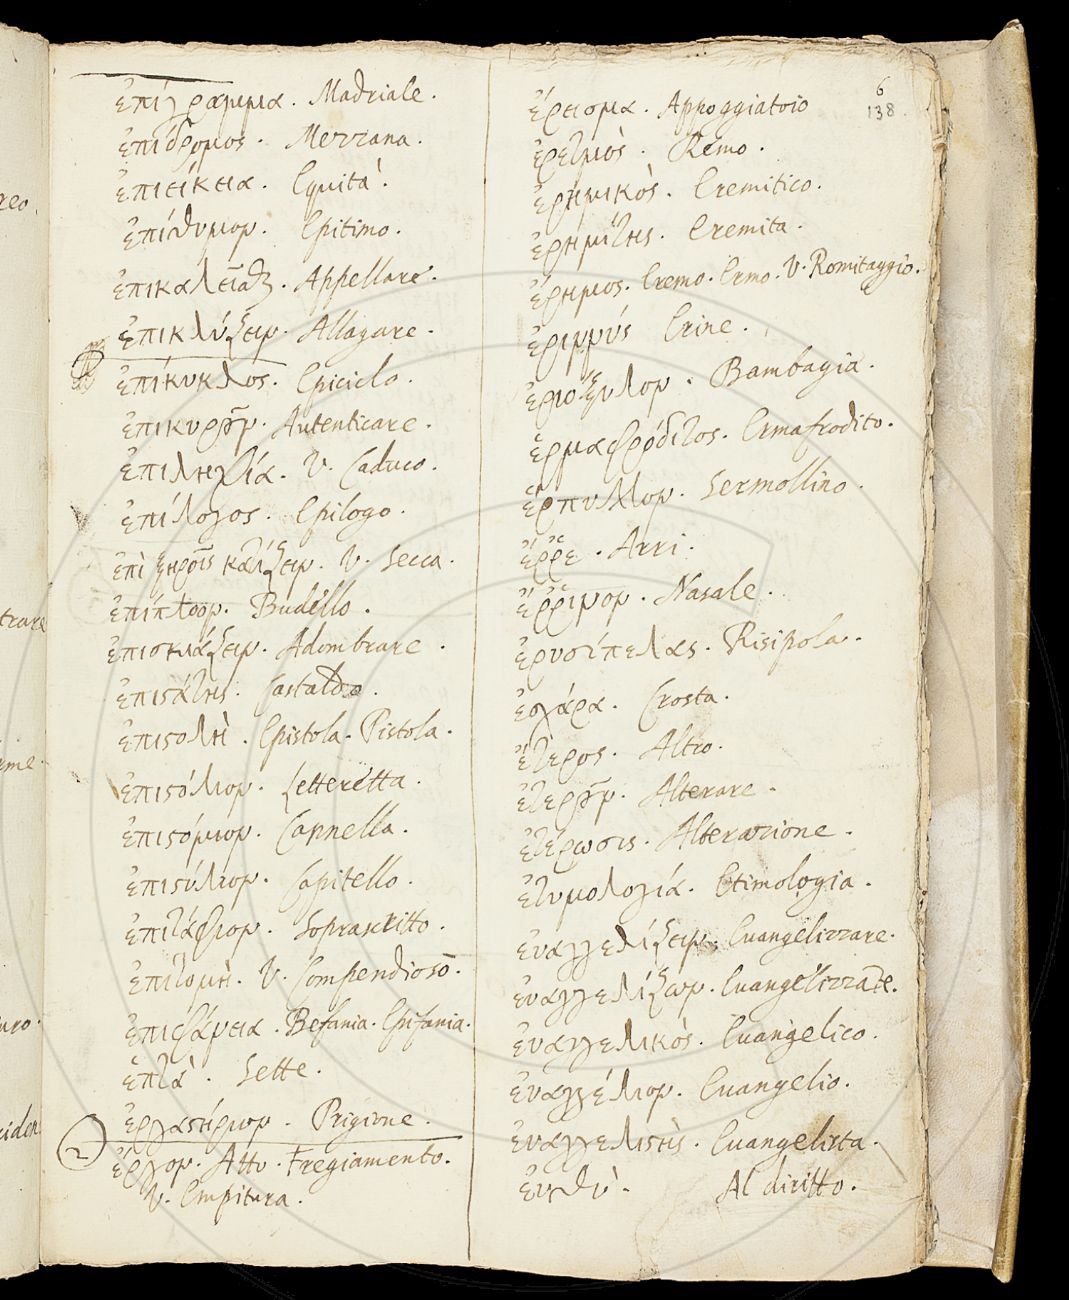 ἐπίγραμμα. Madriale.
ἐπίδρομος. Mezzana.
ἐπιείκεια. Equità.
ἐπίθυμον. Epitimo.
ἐπικαλεῖσθαι. Appellare.
ἐπικλύζειν. Allagare.
ἐπίκυκλος. Epiciclo.
ἐπικυροῦν. Autenticare.
ἐπιληψία. V. Caduco.
ἐπίλογος. Epilogo.
ἐπὶ ξηροῖς καθίζειν. V. Secca.
ἐπίπλοον. Budello.
ἐπισκιάζειν. Adombrare.
ἐπιστάτης. Castaldo.
ἐπιστολὴ. Epistola. Pistola.
ἐπιστόλιον. Letteretta.
ἐπιστόμιον. Cannella.
ἐπιστύλιον. Capitello.
ἐπιτάφιον. Soprascritto.
ἐπιτομὴ. V. Compendioso.
ἐπιφάνεια. Befania. Epifania.
ἑπτὰ. Sette.
ἐργαστήριον. Prigione.
2
ἔργον. Atto. Fregiamento.
V. Empitura.
6
138
ἔρεισμα. Appoggiatoio
ἐρετμὸς. Remo.
ἐρημικὸς. Eremitico.
ἐρημίτης. Eremita.
ἔρημος. Eremo. Ermo. V. Romitaggio.
ἐριννύς Erine.
ἐριόξυλον. Bambagia.
ἑρμαφρόδιτος. Ermafrodito.
ἕρπυλλον. Sermollino.
ἔῤῥε. Arri.
ἔῤῥινον. Nasale.
ἐρυσίπελας. Risipola.
ἐσχάρα. Crosta.
ἕτερος. Altro.
ἑτεροῦν. Alterare.
ἑτέρωσις. Alterazione.
ἐτυμολογία. Etimologia.
εὐαγγελίζειν. Euangelizzare.
εὐαγγελίζων. Euangelizzante.
εὐαγγελικὸς. Euangelico.
εὐαγγέλιον. Euangelio.
εὐαγγελιστὴς. Euangelista.
εὐθὺ. Al diritto.